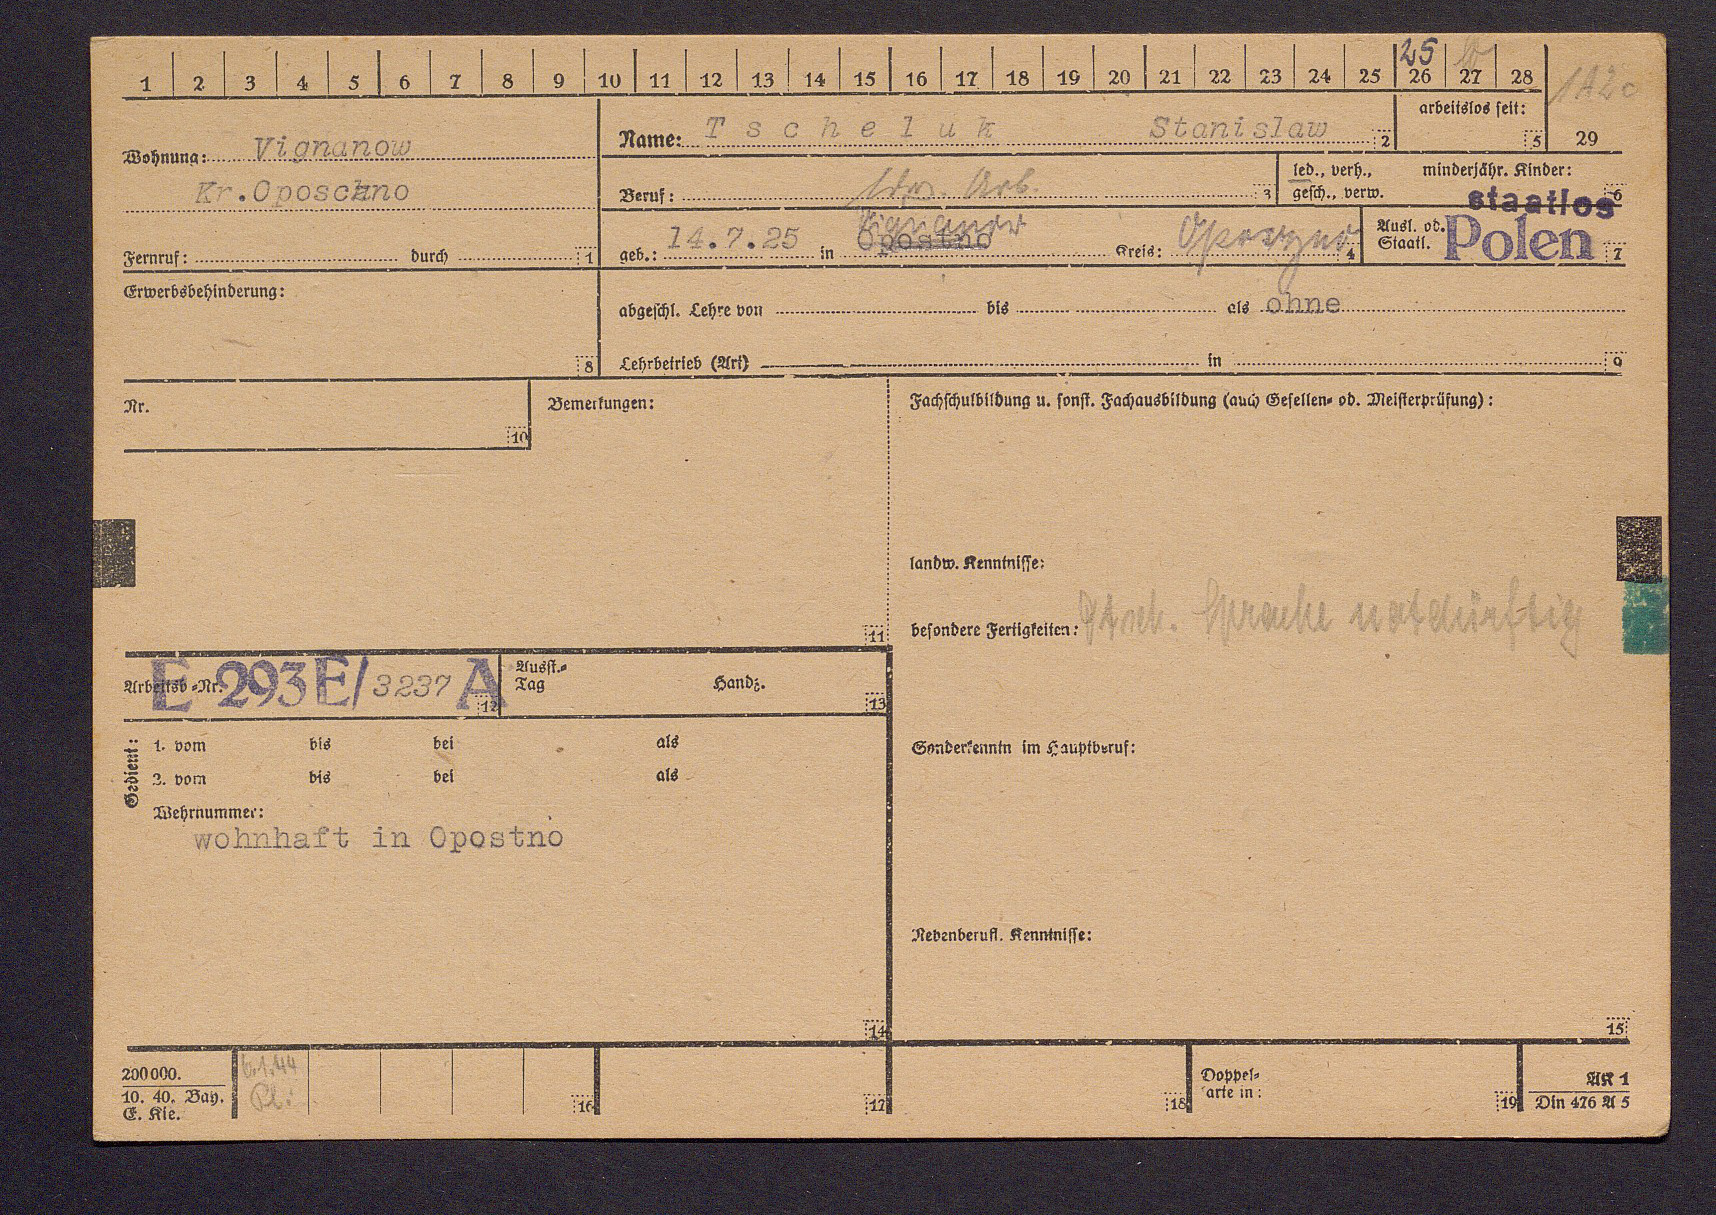 25
1 2 3 4 5 6 7 8 9 10 11 12 13 14 15 16 17 18 19 20 21 22 23 24 25 26 27 28
1A2c
Wohnung: Vignanow
Kr.Oposchno
Fernruf: durch 1
Name: Tscheluk Stanislaw 2
arbeitslos seit: 5
29
Beruf: Arb. 3
led., verh., gesch., verw.
minderjähr. Kinder: 6
staatlos
geb.: 14.7.25 in Opostno Kreis: Opoczno 4
Vignanow
Ausl. od. Staatl. Polen 7
Erwerbsbehinderung: 8
abgeschl. Lehre von bis als ohne
Lehrbetrieb (Art) in 9
Nr. 10
Bemerkungen: 11
Fachschulbildung u. sonst. Fachausbildung (auch Gesellen- od. Meisterprüfung):
landw. Kenntnisse:
besondere Fertigkeiten: Dtsch. Sprache notdürftig
Arbeitsb-Nr. E 293E/3237 A 12
Ausst.-Tag Handz. 13
Gedient:
1. vom bis bei als
2. vom bis bei als
Wehrnummer:
wohnhaft in Opostno
14
Sonderkenntn im Hauptberuf:
Nebenberufl. Kenntnisse:
15
200000.
10. 40. Bay.
E. Kie.
6.1.44
16
17
18
Doppel-
arte in: 19
AK 1
Din 476 A 5